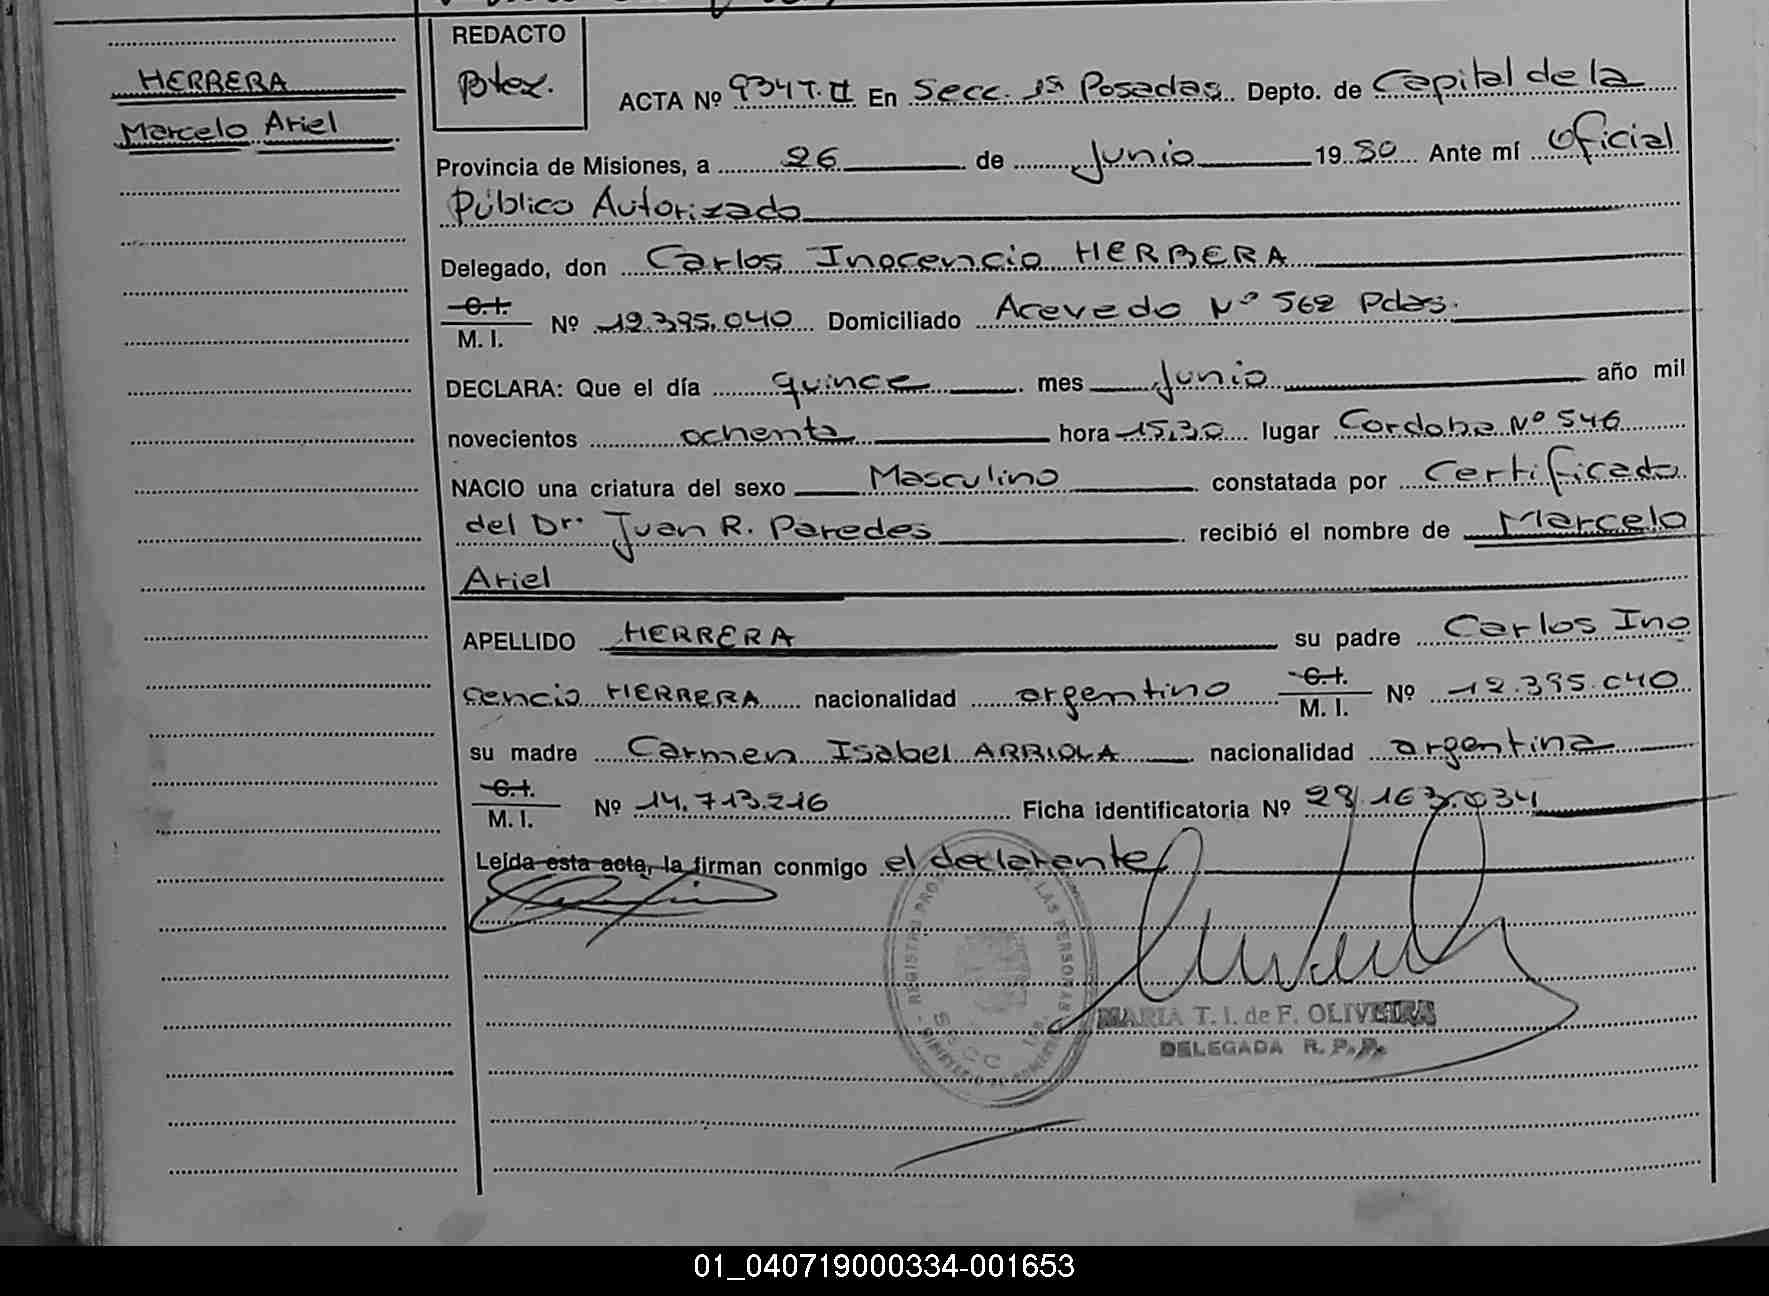 REDACTO
HERRERA
Marcelo Ariel
ACTA Nº 934T.II En Secc. 1ª Posadas Depto. de Capital de la
Provincia de Misiones, a 26 de Junio 1980 Ante mí Oficial
Público Autorizado
Delegado, don Carlos Inocencio HERRERA
C.I.
M. I. Nº 12.395.040 Domiciliado Acevedo Nº 562 Pdas.
DECLARA: Que el día quince mes Junio año mil
novecientos ochenta hora 15,30 lugar Cordoba Nº 546
NACIO una criatura del sexo Masculino constatada por Certificado
del Dr. Juan R. Paredes recibió el nombre de Marcelo
Ariel
APELLIDO HERRERA su padre Carlos Ino
cencio HERRERA nacionalidad argentino C.I. M. I. Nº 12.395.040
su madre Carmen Isabel ARRIOLA nacionalidad argentina
C.I.
M. I. Nº 14.713.216 Ficha identificatoria Nº 28.163.034
Leída esta acta, la firman conmigo el declarante
MARIA T. I. de F. OLIVEIRA
DELEGADA R. P. P.
01_040719000334-001653